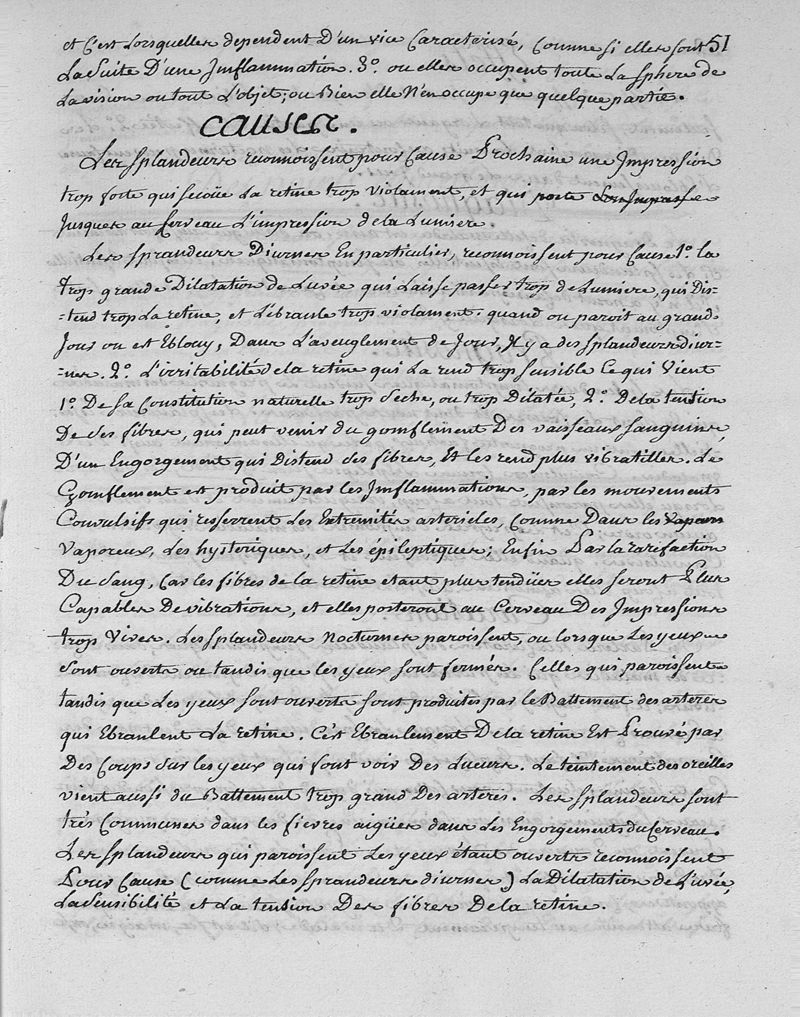 et c'est lorsqu'elles dependent D'un vice Caracterisé, Comme si elles sont 51
La Suite D'une Imflammation. 3.° ou elles occupent toute La sphère de
La vision ou tout L'objet; ou Bien elle N'en occupe que quelque partie.
CAUSES.
Les Splandeurs reconnoissent pour Cause Prochaine une Impression
trop forte qui secoüe La retine trop violament, et qui porte
Jusques au Cerveau L'impression de la Lumiere.
Les Sprandeurs Diurnes En particulier, reconnoissent pour Cause 1.° la
trop grande Dilatation de L'uvée qui Laisse passer trop de Lumiere, qui Dis-
-tend trop La retine, et L'ébranle trop violament. quand on paroit au grand
Jour on est Eblouy, Dans L'aveuglement de Jour, Il y a des Splandeurs diur-
-nes. 2.° L'irritabilité de la retine qui La rend trop sensible Ce qui Vient
1.° De sa Constitution naturelle trop seche, ou trop Dilatée, 2.° De la tention
De ses fibres, qui peut venir du gomflement Des vaisseaux sanguins,
D'un Engorgement qui Distend ses fibres, Et les rend plus vibratilles. Le
Gomflement est produit par les Imflammations, par les mouvements
Convulsifs qui resserrent Les Extremités arterieles, Comme Dans les
Vaporeux, Les hysteriques, et Les épileptiques; Enfin Par la rarefaction
Du Sang, Car les fibres de la retine etant plus tendües elles seront Plus
Capables De vibrations, et elles porteront au Cerveau Des Impressions
trop Vives. Les Splandeurs Nocturnes paroissent, ou lorsque Les yeux
sont ouverts ou tandis que les yeux sont fermés. Celles qui paroissent
tandis que Les yeux sont ouverts sont produites par le Battement des arteres
qui Ebranlent La retine. C'est Ebranlement De la retine Est Prouvé par
Des Coups sur les yeux qui font voir Des Lueurs. Le teintement des oreilles
vient aussi du Battement trop grand Des arteres. Les Splandeurs sont
trés Communes dans les fievres aigües dans Les Engorgements du Cerveau.
Les Splandeurs qui paroissent Les yeux étant ouverts reconnoissent
Pour Cause (comme Les Sprandeurs diurnes) La Dilatation de L'uvée,
La Sensibilité et La tention Des fibres De la retine.